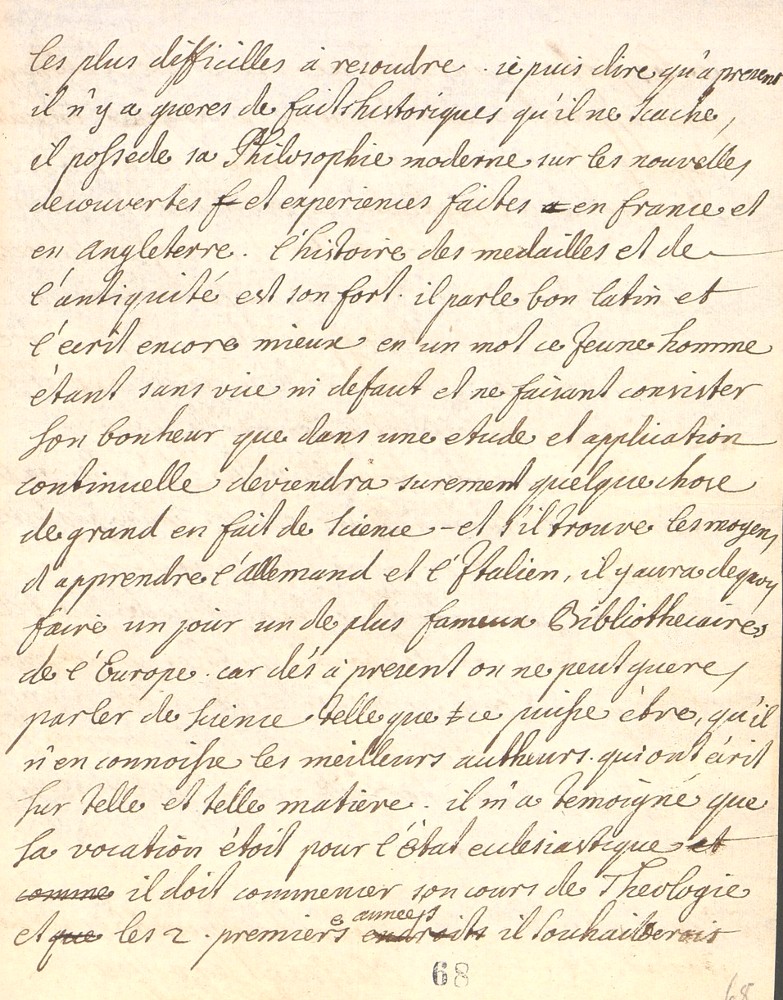 les plus difficilles a resoudre. ie puis dire qu'a present
il n'y a gueres de faits historiques qu'il ne scache,
il possede sa Philosophie moderne sur les nouvelles
decouvertes f et experiences faites en france et
en Angleterre. l'histoire des medailles et de
l'antiquité est son fort. il parle bon latin et
l'ecrit encore mieux en un mot ce Jeune homme
étant sans vice ni defaut et ne faisant consister
son bonheur que dans une etude et application
continuelle deviendra surement quelque chose
de grand en fait de science - et s'il trouve les moyens
d'apprendre l'Allemand et l'Italien, il y aura de quoy
faire un jour un de plus fameux Bibliothecaires
de l'Europe. car dés à present on ne peut guere
parler de science telle que ce puisse être, qu'il
n'en connoisse les meilleurs autheurs. qui ont écrit
sur telle et telle matiere. il m'a temoigné que
sa vocation étoit pour l'État eclesiastique et
comme il doit commencer son cours de Theologie
années
et que les 2. premieres endroits il souhaiterois
68
68